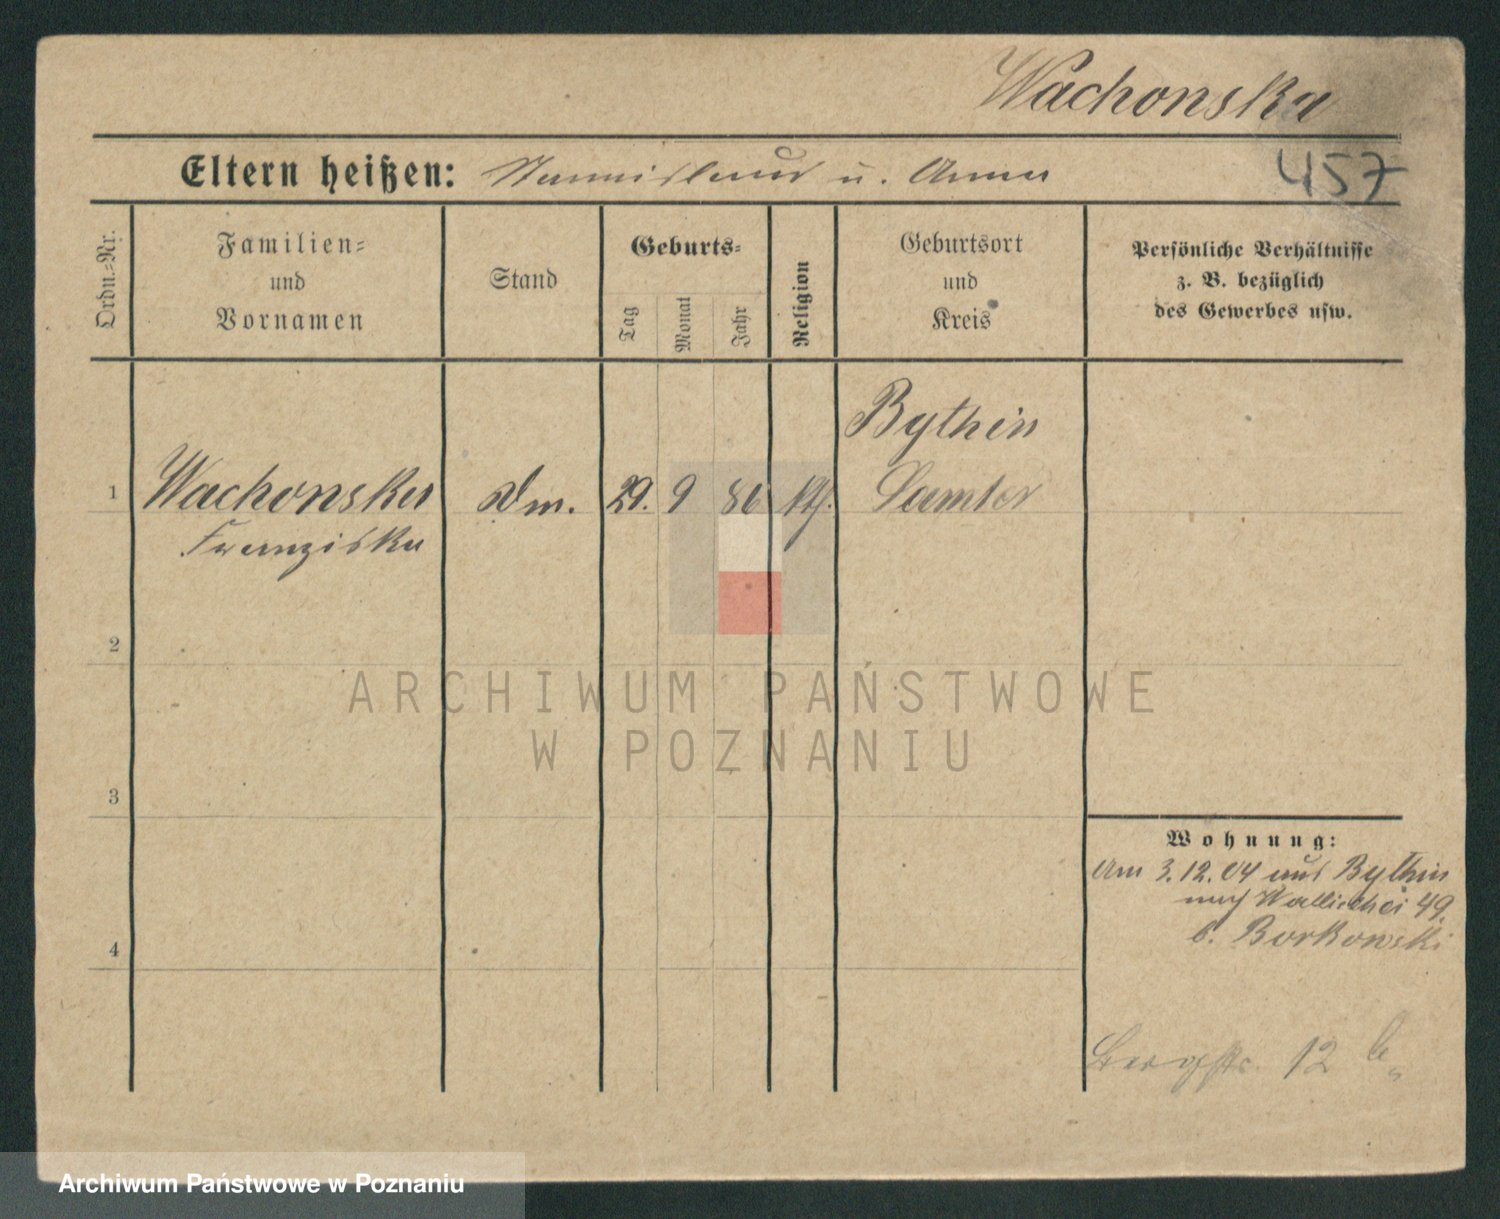 Wachonska
Eltern heißen: Stannislaus u. Anna
457
Ordn.=Nr.
Familien=
und
Vornamen
Stand
Geburts=
Tag
Monat
Jahr
Religion
Geburtsort
und
Kreis
Persönliche Verhältnisse
z. B. bezüglich
des Gewerbes usw.
1
Wachonska
Franziska
Dm.
29.
9
86
kth.
Bythin
Samter
2
3
4
Wohnung:
Am 3.12.04 aus Bythin
nach Wallischei 49.
b. Borkowski
Bergstr. 12
ARCHIWUM PAŃSTWOWE
W POZNANIU
Archiwum Państwowe w Poznaniu